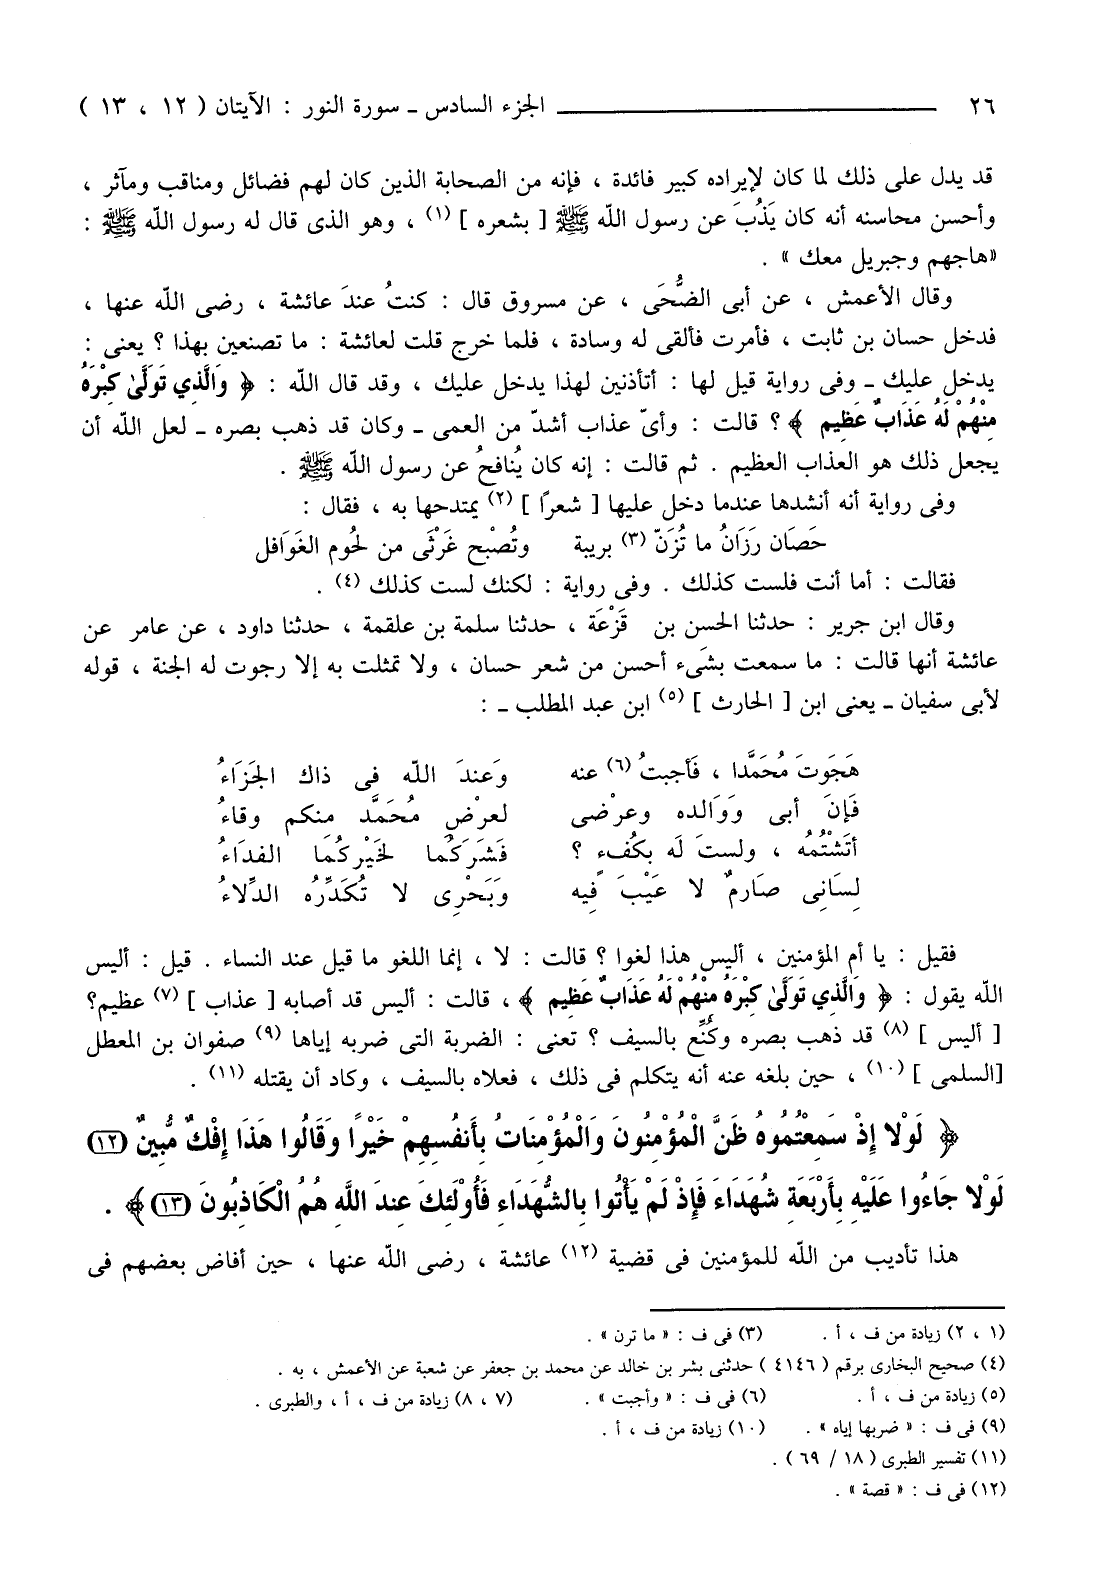 ٢٦ ــــــــ الجزء السادس ـ سورة النور : الآيتان ( ١٢ ، ١٣ )
قد يدل على ذلك لما كان لإيراده كبير فائدة ، فإنه من الصحابة الذين كان لهم فضائل ومناقب ومآثر ،
وأحسن محاسنه أنه كان يَذُبّ عن رسول الله ﷺ [ بشعره ] (١) ، وهو الذى قال له رسول الله ﷺ :
«هاجهم وجبريل معك » .
وقال الأعمش ، عن أبى الضُّحَى ، عن مسروق قال : كنتُ عندَ عائشة ، رضى الله عنها ،
فدخل حسان بن ثابت ، فأمرت فألقى له وسادة ، فلما خرج قلت لعائشة : ما تصنعين بهذا ؟ يعنى :
يدخل عليك ـ وفى رواية قيل لها : أتأذنين لهذا يدخل عليك ، وقد قال الله : ﴿ وَالَّذِي تَوَلَّىٰ كِبْرَهُ
مِنْهُمْ لَهُ عَذَابٌ عَظِيم ﴾ ؟ قالت : وأىّ عذاب أشدّ من العمى ـ وكان قد ذهب بصره ـ لعل الله أن
يجعل ذلك هو العذاب العظيم . ثم قالت : إنه كان يُنافحُ عن رسول الله ﷺ .
وفى رواية أنه أنشدها عندما دخل عليها [ شعرًا ] (٢) يمتدحها به ، فقال :
حَصَان رَزَانُ ما تُزَنّ (٣) بريبة وتُصْبح غَرْثَى من لحُوم الغَوَافل
فقالت : أما أنت فلست كذلك . وفى رواية : لكنك لست كذلك (٤) .
وقال ابن جرير : حدثنا الحسن بن قَزْعَة ، حدثنا سلمة بن علقمة ، حدثنا داود ، عن عامر عن
عائشة أنها قالت : ما سمعت بشىء أحسن من شعر حسان ، ولا تمثلت به إلا رجوت له الجنة ، قوله
لأبى سفيان ـ يعنى ابن [ الحارث ] (٥) ابن عبد المطلب ـ :
هَجَوتَ مُحَمَّدا ، فَأجبتُ (٦) عنه وَعندَ الله فى ذاك الجَزَاءُ
فَإنَ أبى وَوَالده وعرْضى لعرْضِ مُحَمَّد منكم وقاءُ
أتَشْتُمُه ، ولستَ لَه بكُفء ؟ فَشَركُما لخَيْركُمَا الفدَاءُ
لِسَانِى صَارمٌ لا عَيْبَ فيه وَبَحْرِى لا تُكَدِّرُه الدِّلاءُ
فقيل : يا أم المؤمنين ، أليس هذا لغوا ؟ قالت : لا ، إنما اللغو ما قيل عند النساء . قيل : أليس
الله يقول : ﴿ وَالَّذِي تَوَلَّىٰ كِبْرَهُ مِنْهُمْ لَهُ عَذَابٌ عَظِيم ﴾ ، قالت : أليس قد أصابه [ عذاب ] (٧) عظيم؟
[ أليس ] (٨) قد ذهب بصره وكُنِّع بالسيف ؟ تعنى : الضربة التى ضربه إياها (٩) صفوان بن المعطل
[السلمى ] (١٠) ، حين بلغه عنه أنه يتكلم فى ذلك ، فعلاه بالسيف ، وكاد أن يقتله (١١) .
﴿ لَوْلا إِذْ سَمِعْتُمُوهُ ظَنَّ الْمُؤْمِنُونَ وَالْمُؤْمِنَاتُ بِأَنفُسِهِمْ خَيْرًا وَقَالُوا هَذَا إِفْكٌ مُّبِينٌ (١٢)
لَوْلا جَاءُوا عَلَيْهِ بِأَرْبَعَةِ شُهَدَاءَ فَإِذْ لَمْ يَأْتُوا بِالشُّهَدَاءِ فَأُولَئِكَ عِندَ اللَّهِ هُمُ الْكَاذِبُونَ (١٣) ﴾ .
هذا تأديب من الله للمؤمنين فى قضية (١٢) عائشة ، رضى الله عنها ، حين أفاض بعضهم فى
(١ ، ٢) زيادة من ف ، أ . (٣) فى ف : « ما ترن » .
(٤) صحيح البخارى برقم ( ٤١٤٦ ) حدثنى بشر بن خالد عن محمد بن جعفر عن شعبة عن الأعمش ، به .
(٥) زيادة من ف ، أ . (٦) فى ف : « وأجبت » . (٧ ، ٨) زيادة من ف ، أ ، والطبرى .
(٩) فى ف : « ضربها إياه » . (١٠) زيادة من ف ، أ .
(١١) تفسير الطبرى ( ١٨ / ٦٩ ) .
(١٢) فى ف : « قصة » .